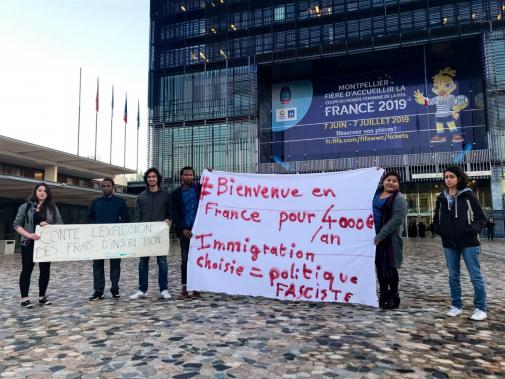 MONTPELLIER
FIÈRE D'ACCUEILLIR LA
COUPE DU MONDE FÉMININE DE LA FIFA
FRANCE 2019
7 JUIN - 7 JUILLET 2019
Réservez vos places :
fr.fifa.com/fifawwc/tickets
CONTE L'EXPLOSION
DES FRAIS D'INSCRIPTION
#Bienvenue en
France pour 4000€
/an
Immigration
choisie = politique
FASCISTE